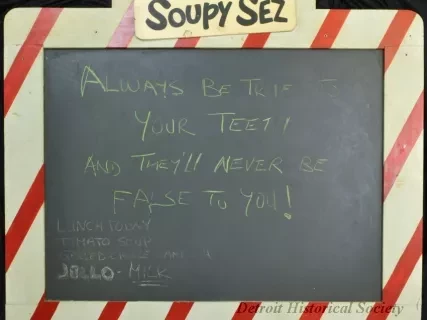 SOUPY SEZ
ALWAYS BE TRUE TO
YOUR TEETH
AND THEY'LL NEVER BE
FALSE TO YOU!
LUNCH TODAY
TOMATO SOUP
GRILLED CHEESE
JELLO - MILK
Detroit Historical Society